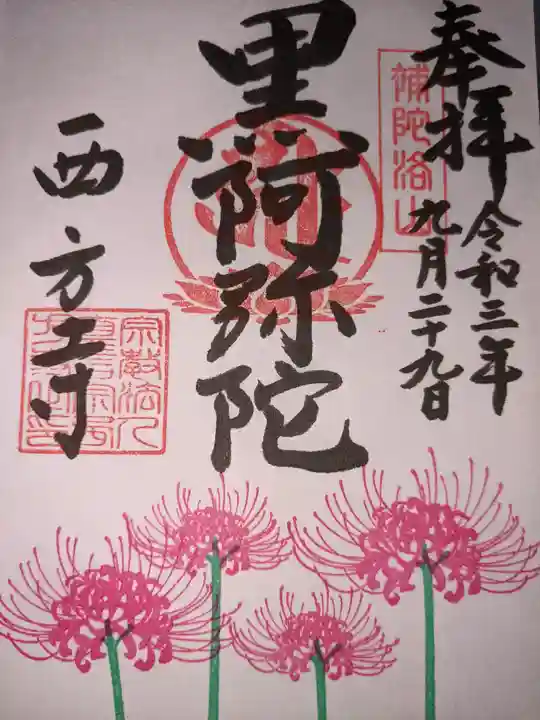 奉拝
補陀洛山
令和三年
九月二十九日
黒阿弥陀
西方寺
宗教法人